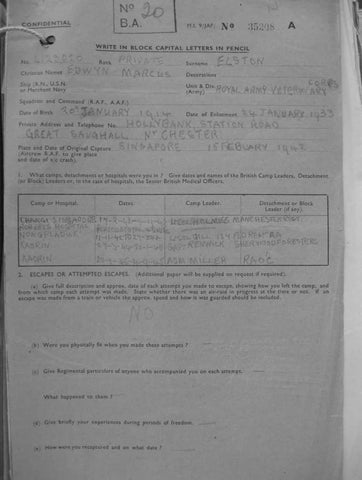 CONFIDENTIAL
No 20
B.A.
M.I. 9/JAP. No 35208 A
WRITE IN BLOCK CAPITAL LETTERS IN PENCIL
No. Rank PRIVATE Surname ELSTON
Christian Names EDWYN MARCUS Decorations
Ship (R.N., U.S.N. or Merchant Navy) Unit & Div. (Army) ROYAL ARMY VETERINARY CORPS
Squadron and Command (R.A.F., A.A.F.)
Date of Birth JANUARY 1914 Date of Enlistment 24 JANUARY 1933
Private Address and Telephone No. HOLLYBANK, STATION ROAD
GREAT SAUGHALL Nr CHESTER
Place and Date of Original Capture SINGAPORE 15 FEBUARY 1942
(Aircrew R.A.F. to give place
and date of a/c crash).
1. What camps, detachments or hospitals were you in? Give dates and names of the British Camp Leaders, Detachment
(or Block) Leaders or, in the case of hospitals, the Senior British Medical Officers.
Camp or Hospital. Dates. Camp Leader. Detachment or Block Leader (if any).
CHANGI SINGAPORE MANCHESTER
ROBERTS HOSPITAL
KABRIN SHERWOOD FORESTERS
KABRIN MILLER RAOC
2. ESCAPES OR ATTEMPTED ESCAPES. (Additional paper will be supplied on request if required).
(a) Give full description and approx. date of each attempt you made to escape, showing how you left the camp, and
from which camp each attempt was made. State whether there was an air-raid in progress at the time or not. If an
escape was made from a train or vehicle the approx. speed and how it was guarded should be included.
NO
(b) Were you physically fit when you made these attempts?
(c) Give Regimental particulars of anyone who accompanied you on each attempt.
What happened to them?
(d) Give briefly your experiences during periods of freedom.
(e) How were you recaptured and on what date?